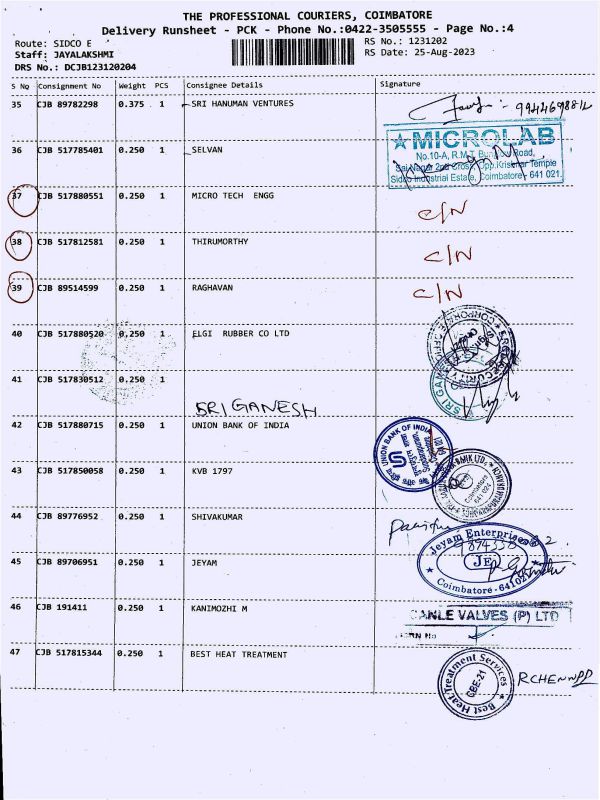 THE PROFESSIONAL COURIERS, COIMBATORE
Delivery Runsheet - PCK - Phone No.:0422-3505555 - Page No.:4
Route: SIDCO E RS No.: 1231202
Staff: JAYALAKSHMI RS Date: 25-Aug-2023
DRS No.: DCJB123120204
S No Consignment No Weight PCS Consignee Details Signature
35 CJB 89782298 0.375 1 SRI HANUMAN VENTURES
MICROLAB
No.10-A, R.M.T. Bungalow Road,
Sai Nagar 2nd Cross, Opp.Krishnar Temple
Sidco Industrial Estate, Coimbatore - 641 021.
36 CJB 517785401 0.250 1 SELVAN
37 CJB 517880551 0.250 1 MICRO TECH ENGG C/N
38 CJB 517812581 0.250 1 THIRUMORTHY C/N
39 CJB 89514599 0.250 1 RAGHAVAN C/N
40 CJB 517880520 0.250 1 ELGI RUBBER CO LTD
41 CJB 517830512 0.250 1
SRI GANESH
42 CJB 517880715 0.250 1 UNION BANK OF INDIA UNION BANK OF INDIA
43 CJB 517850058 0.250 1 KVB 1797
Coimbatore
641 024
44 CJB 89776952 0.250 1 SHIVAKUMAR
45 CJB 89706951 0.250 1 JEYAM Jeyam Enterprises
JE
Coimbatore-641021
46 CJB 191411 0.250 1 KANIMOZHI M VALVES (P) LTD
47 CJB 517815344 0.250 1 BEST HEAT TREATMENT Best Heat Treatment Services
CBE-21